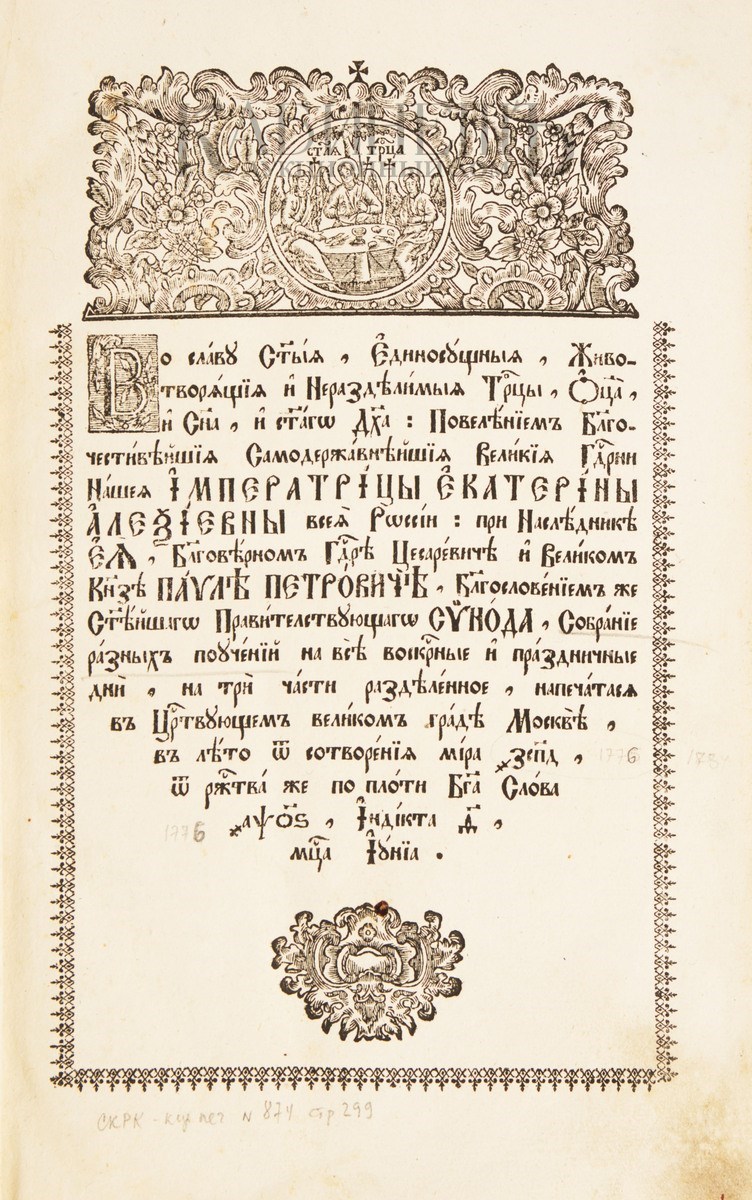 СТАѦ ТРЦА
Во сла́вꙋ Ст҃ы́ѧ , Є҆диносꙋ́щныѧ , Живо-
творѧ́щїѧ и҆ Нераздѣли́мыѧ Трⷪ҇цы , Ѻ҆ц҃а̀ ,
и҆ Сн҃а , и҆ ст҃а́гѡ Дх҃а : Повелѣ́нїемъ Бл҃го-
чести́вѣйшїѧ Самодержа́внѣйшїѧ Вели́кїѧ Гдⷭ҇рни
На́шеѧ І҆МПЕРАТРІ́ЦЫ Є҆КАТЕРІ́НЫ
А҆ЛЕѮІ́ЕВНЫ всеѧ̀ Рѡссі́и : при Наслѣ́дникѣ
Є҆Ѧ̀ , Бл҃говѣ́рномъ Гдⷭ҇рѣ Цесаре́вичѣ и҆ Вели́комъ
Кн҃зѣ ПА́ѴЛѢ ПЕТРО́ВИЧѢ , Бл҃гослове́нїемъ же
Ст҃ѣ́йшагѡ Прави́телствꙋющагѡ СѴНО́ДА , Собра́нїе
ра́зныхъ поꙋче́нїй на всѣ̀ воскрⷭ҇ные и҆ пра́здничные
дни̑ , на трѝ ча́сти раздѣле́нное , напеча́тасѧ
въ Црⷭ҇твꙋющемъ вели́комъ гра́дѣ Москвѣ̀ ,
въ лѣ́то ѿ сотворе́нїѧ мі́ра ҂зсп҃д , 1776
ѿ рж҇тва̀ же по пло́ти Бг҃а Сло́ва
1776 ҂аѱо҃ѕ , І҆нді́кта д҃ ,
мцⷭ҇а І҆ꙋ́нїа .
СКРК - кир печ N 874 стр 299